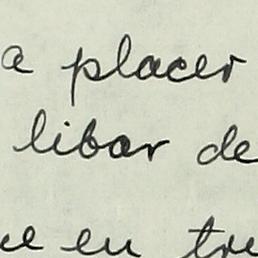 a placer
libar de
en